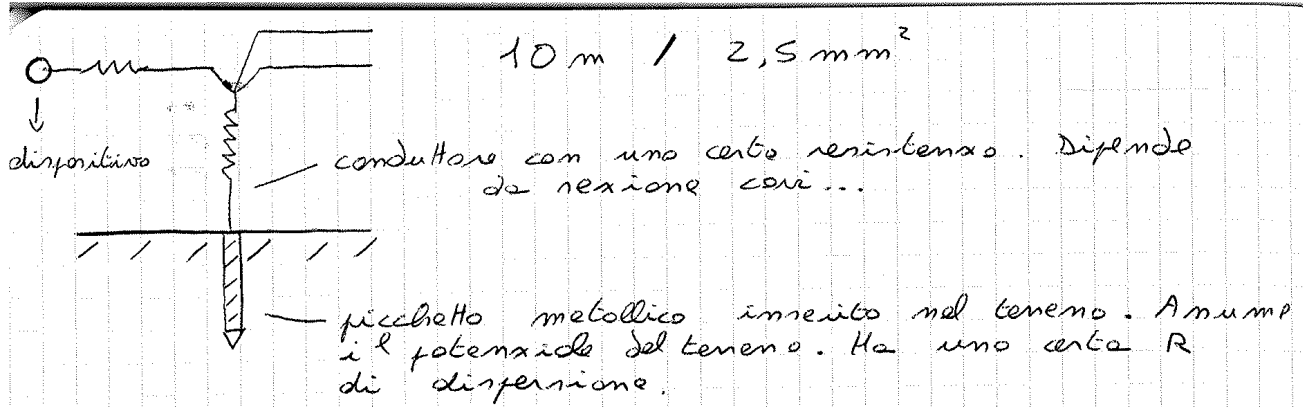 10 m / 2,5 mm²
dispositivo
conduttore con una certa resistenza. Dipende
da sezione cavi...
picchetto metallico inserito nel terreno. Assume
il potenziale del terreno. Ha una certa R
di dispersione.